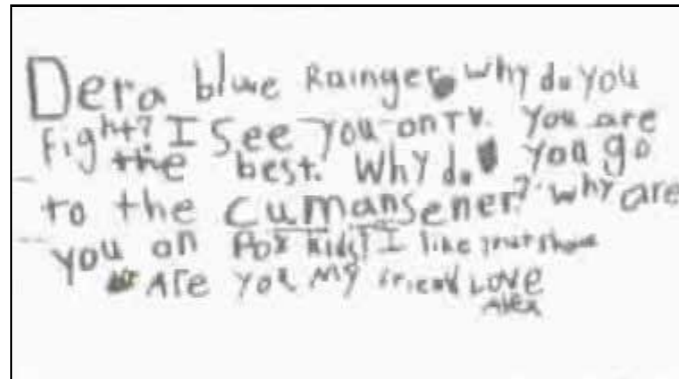 Dera blue Rainger why do you
fight? I See you on TV. You are
the best. Why do you go
to the cumansener? why are
you on Fox Kids? I like your show
Are you my friend Love
Alex